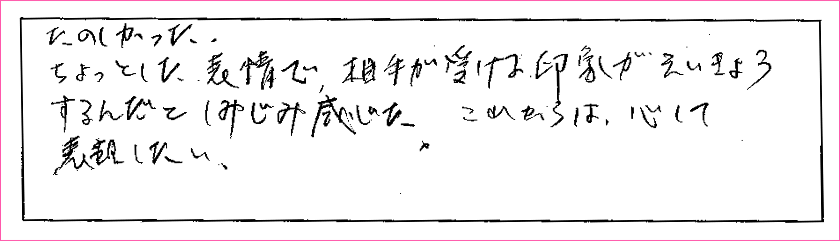 たのしかった.
ちょっとした表情で、相手が受ける印象がえいきょう
するんだとしみじみ感じた。これからは、心して
表現したい、